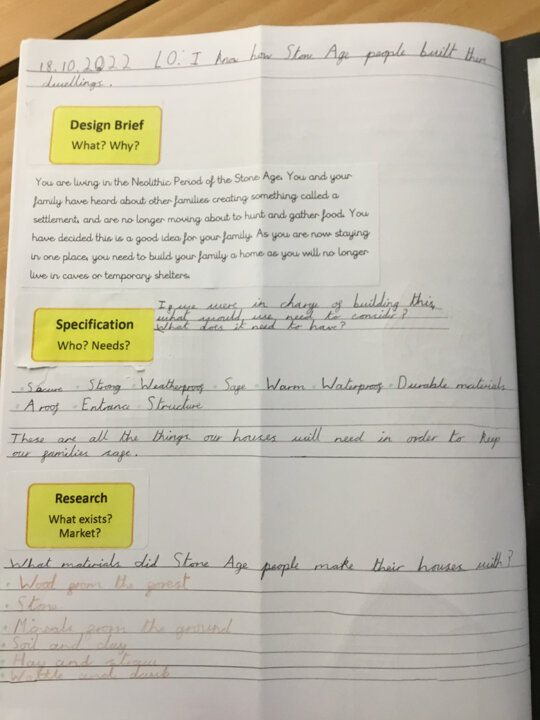 18.10.2022 LO: I know how Stone Age people built their
dwellings.
Design Brief
What? Why?
You are living in the Neolithic Period of the Stone Age. You and your
family have heard about other families creating something called a
settlement, and are no longer moving about to hunt and gather food. You
have decided this is a good idea for your family. As you are now staying
in one place, you need to build your family a home as you will no longer
live in caves or temporary shelters.
Specification
Who? Needs?
If we were in charge of building this,
what would we need to consider?
What does it need to have?
• Secure • Strong • Weatherproof • Safe • Warm • Waterproof • Durable materials
• A roof • Entrance • Structure
These are all the things our houses will need in order to keep
our families safe.
Research
What exists?
Market?
What materials did Stone Age people make their houses with?
• Wood from the forest
• Stone
• Minerals from the ground
• Soil and clay
• Hay and straw
• Wattle and daub